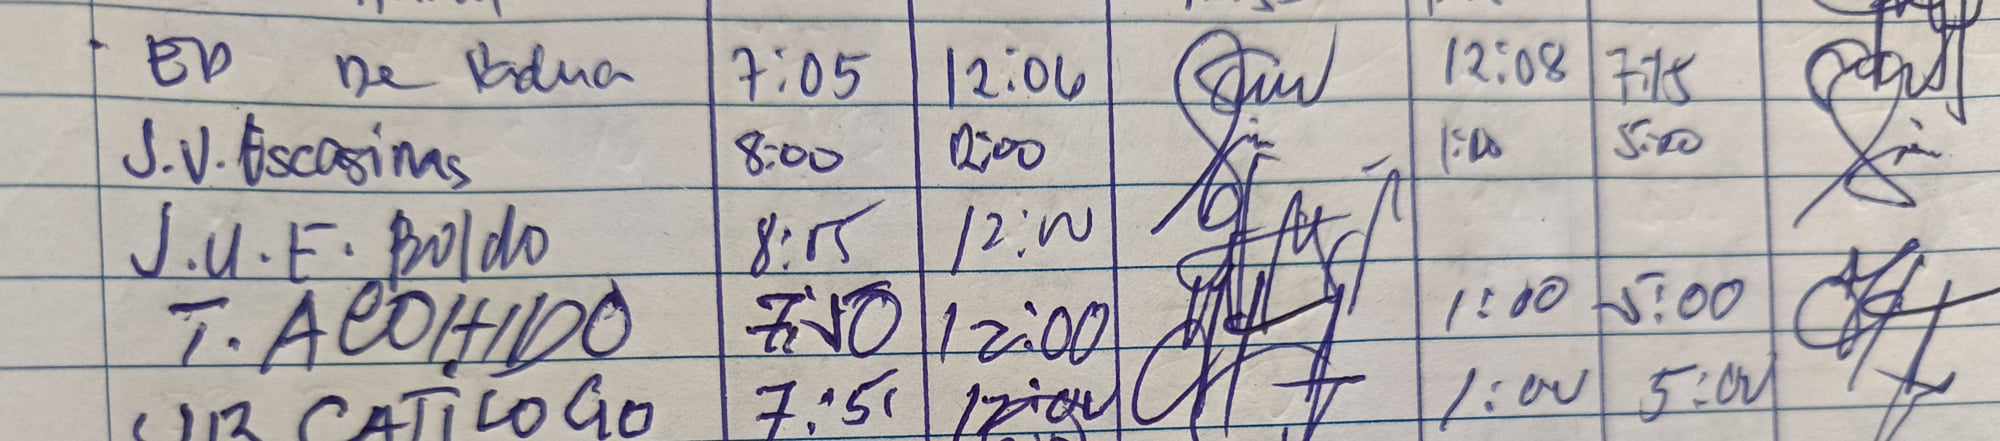 ED De Padua 7:05 12:06 12:08 7:15
J.V. Escasinas 8:00 12:00 1:00 5:00
J.U.E. Boldo 8:15 12:00
T. ACOHIDO 7:50 12:00 1:00 5:00
CATILOGO 7:51 12:00 1:00 5:00